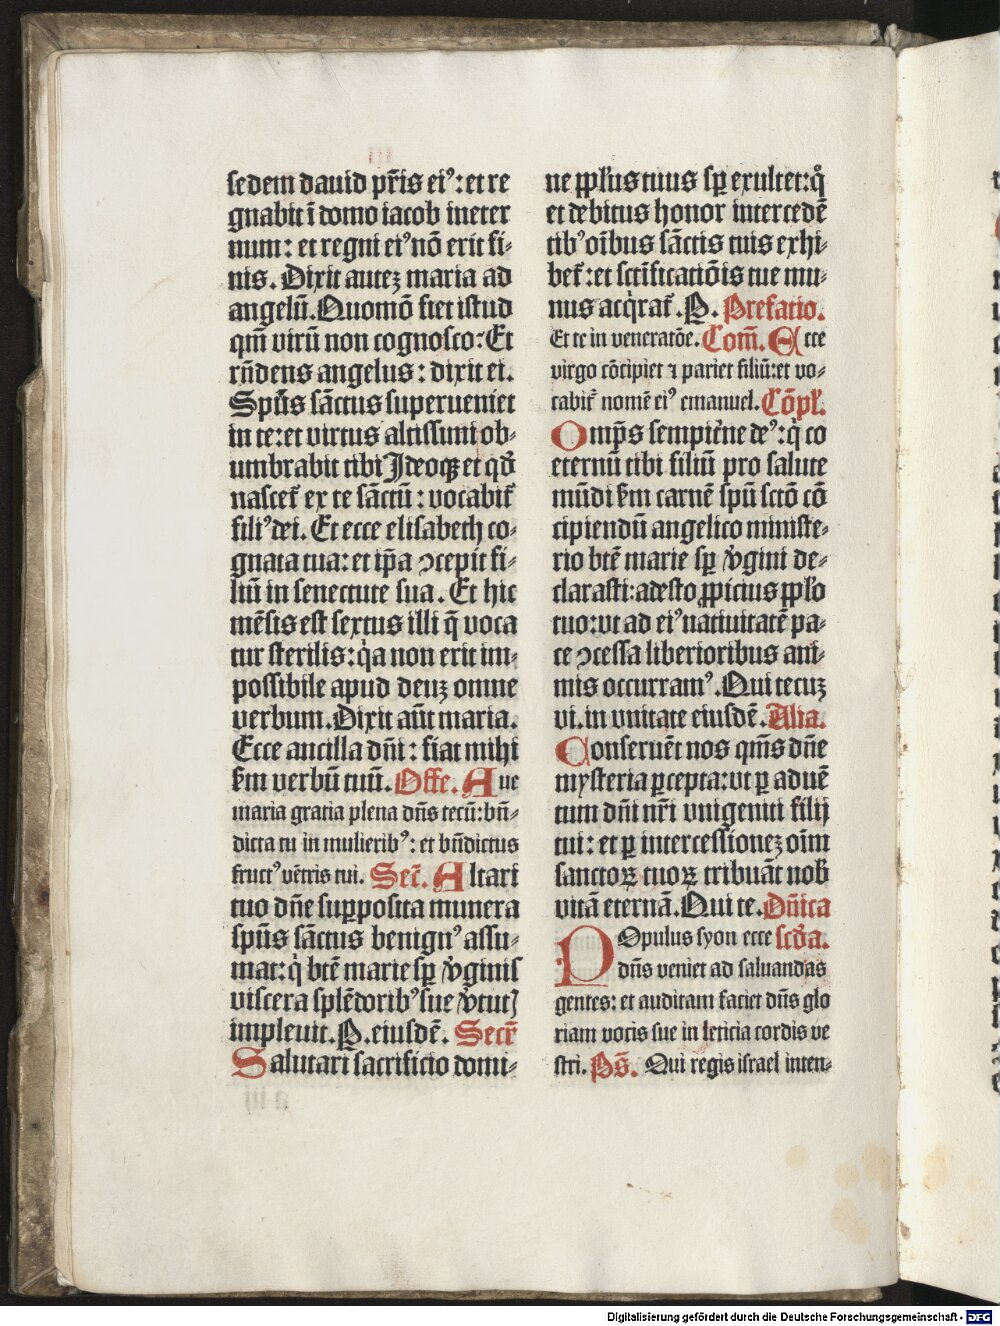 sedem dauid pr̃is ei⁹: et re
gnabit ĩ domo iacob ineter
num: et regni ei⁹ nõ erit fi-
nis. Dixit autez maria ad
angelũ. Quomõ fiet istud
qm̃ virũ non cognosco: Et
rñdens angelus: dixit ei.
Spũs sãctus superueniet
in te: et virtus altissimi ob-
umbrabit tibi Ideoqꝫ et qđ
nascet̃ ex te sãctũ: vocabit̃
fili⁹ dei. Et ecce elisabeth co-
gnata tua: et ip̃a ꝯcepit fi-
liũ in senectute sua. Et hic
mẽsis est sextus illi q̃ voca
tur sterilis: qͥa non erit im-
possibile apud deuz omne
verbum. Dixit aũt maria.
Ecce ancilla dñi: fiat mihi
ẜm verbũ tuũ. Offe. Aue
maria gratia plena dñs tecũ: bñ-
dicta tu in mulierib⁹: et bñdictus
fruct⁹ vẽtris tui. Sec̃. Altari
tuo dñe suꝑposita munera
spũs sãctus benign⁹ assu-
mat: qͥ btẽ marie sꝑ v̾ginis
viscera splẽdorib⁹ sue v̾tutꝭ
impleuit. P. eiusdẽ. Secr̃
Salutari sacrificio domi-
ne ppl̃us tuus sꝑ exultet: qͦ
et debitus honor intercedẽ
tib⁹ oĩbus sãctis tuis exhi-
bet̃: et sctĩficatiõis tue mu-
nus acqͥrat̃. P. Prefatio.
Et te in veneratõe. Com̃. Ecce
virgo cõcipiet ⁊ pariet filiũ: et vo-
cabit̃ nomẽ ei⁹ emanuel. Cõpl̃.
Omp̃s sempit̾ne de⁹: qͥ co
eternũ tibi filiũ pro salute
mũdi ẜm carnẽ spũ sctõ cõ
cipiendũ angelico ministe-
rio btẽ marie sꝑ v̾gini de-
clarasti: adesto ꝓpicius ppl̃o
tuo: vt ad ei⁹ natiuitatẽ pa-
ce ꝯcessa liberioribus ani-
mis occurram⁹. Qui tecuz
vi. in vnitate eiusdẽ. Alia.
Conseruẽt nos qm̃s dñe
mysteria ꝑcepta: vt ꝑ aduẽ
tum dñi nr̃i vnigeniti filij
tui: et ꝑ intercessionez oĩm
sanctoꝝ tuoꝝ tribuãt nob̃
vitã eternã. Qui te. Dñica
Populus syon ecce scđa.
dñs veniet ad saluandas
gentes: et auditam faciet dñs glo
riam vocis sue in leticia cordis ve
stri. Ps̃. Qui regis israel inten-
Digitalisierung gefördert durch die Deutsche Forschungsgemeinschaft - DFG